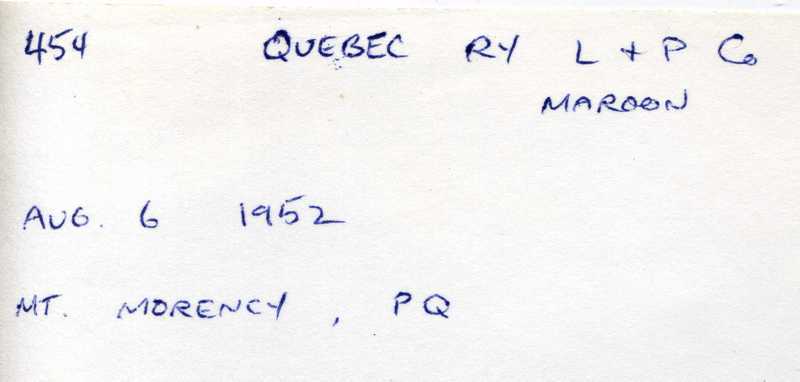 454 QUEBEC RY L + P Co
MAROON
AUG. 6 1952
MT. MORENCY, PQ